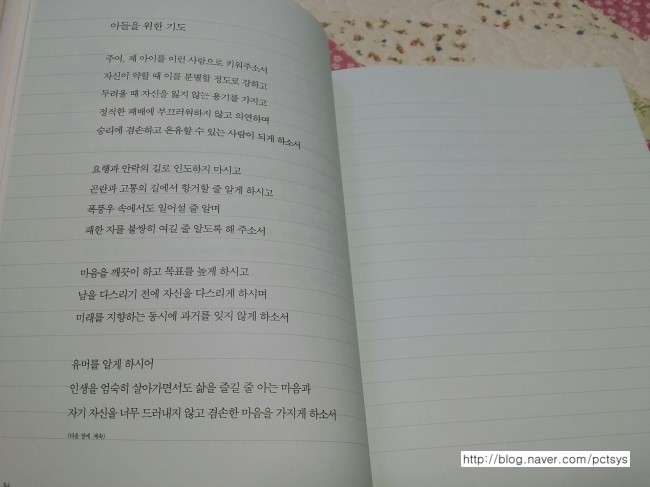 아들을 위한 기도
주여, 제 아이를 이런 사람으로 키워주소서
자신이 약할 때 이를 분별할 정도로 강하고
두려울 때 자신을 잃지 않는 용기를 가지고
정직한 패배에 부끄러워하지 않고 의연하며
승리에 겸손하고 온유할 수 있는 사람이 되게 하소서
요행과 안락의 길로 인도하지 마시고
곤란과 고통의 길에서 항거할 줄 알게 하시고
폭풍우 속에서도 일어설 줄 알며
패한 자를 불쌍히 여길 줄 알도록 해 주소서
마음을 깨끗이 하고 목표를 높게 하시고
남을 다스리기 전에 자신을 다스리게 하시며
미래를 지향하는 동시에 과거를 잊지 않게 하소서
유머를 알게 하시어
인생을 엄숙히 살아가면서도 삶을 즐길 줄 아는 마음과
자기 자신을 너무 드러내지 않고 겸손한 마음을 가지게 하소서
(다음 장에 계속)
http://blog.naver.com/pctsys